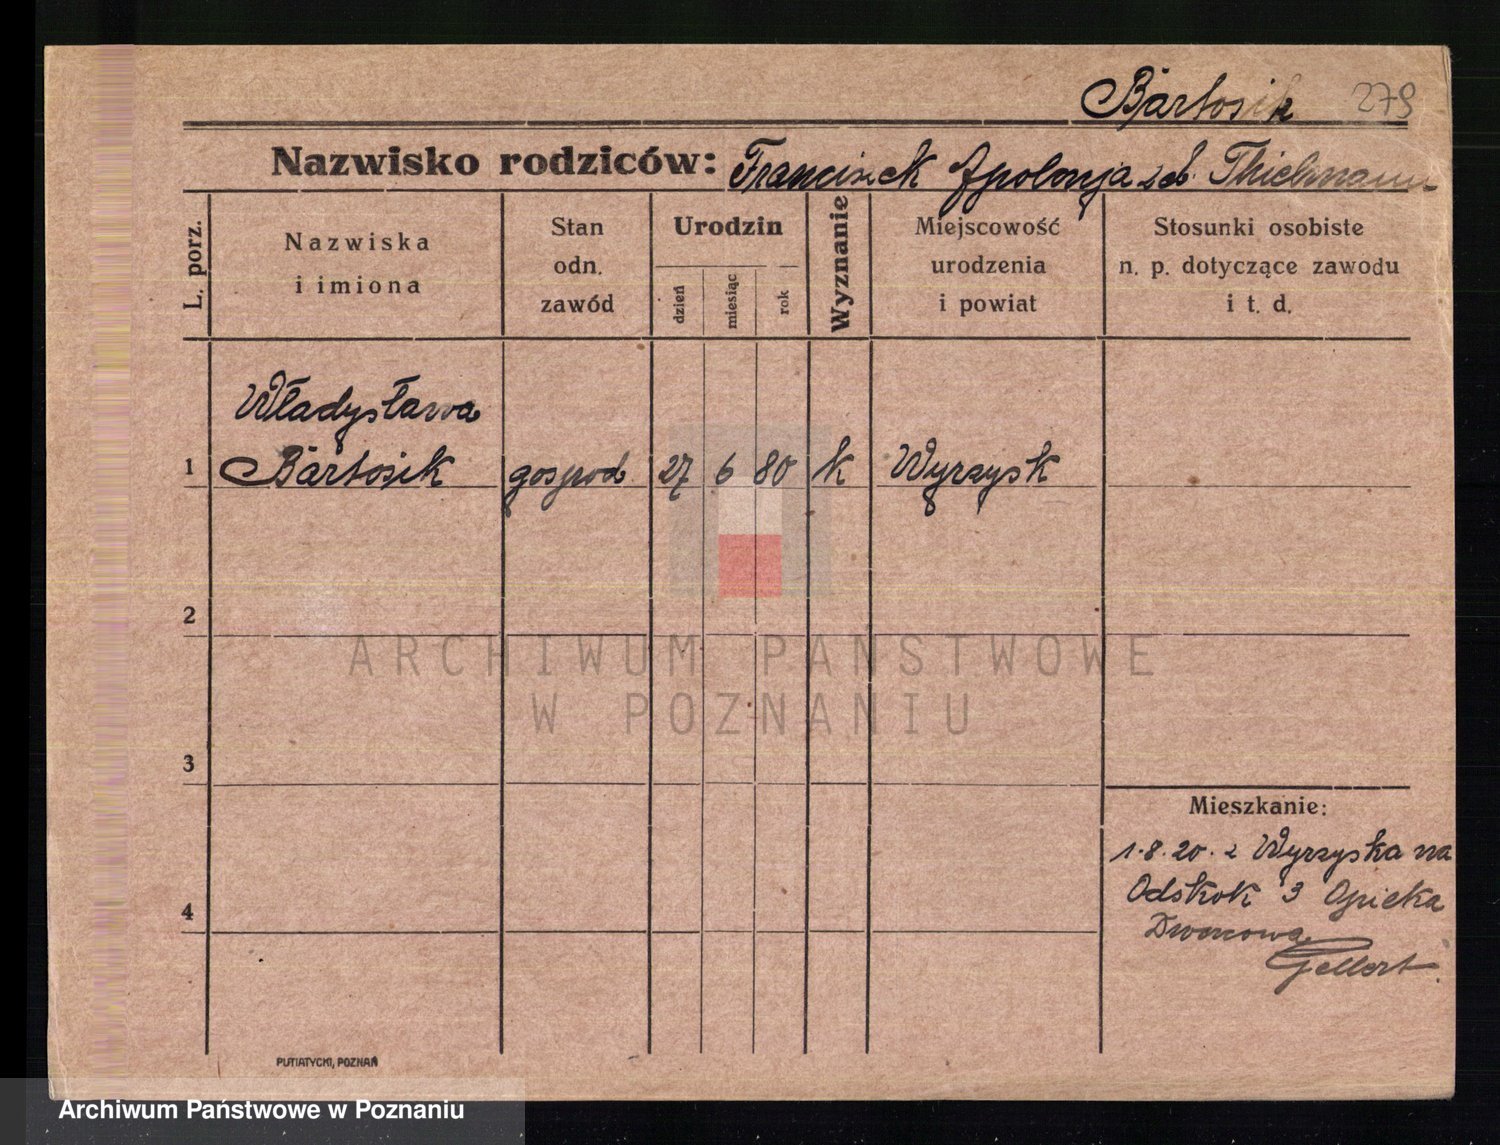 Bartosik 279
Nazwisko rodziców: Franciszek Apolonja Thielmann
L. porz.
Nazwiska
i imiona
Stan
odn.
zawód
Urodzin
dzień
miesiąc
rok
Wyznanie
Miejscowość
urodzenia
i powiat
Stosunki osobiste
n. p. dotyczące zawodu
i t. d.
Władysława
1 Bartosik gospod. 27 6 80 k Wyrzysk
2
ARCHIWUM PAŃSTWOWE
W POZNANIU
3
Mieszkanie:
1.8.20. z Wyrzyska na
Odskok 3 Opieka
Dworcowa
4
Gellert
PUTIATYCKI, POZNAŃ
Archiwum Państwowe w Poznaniu